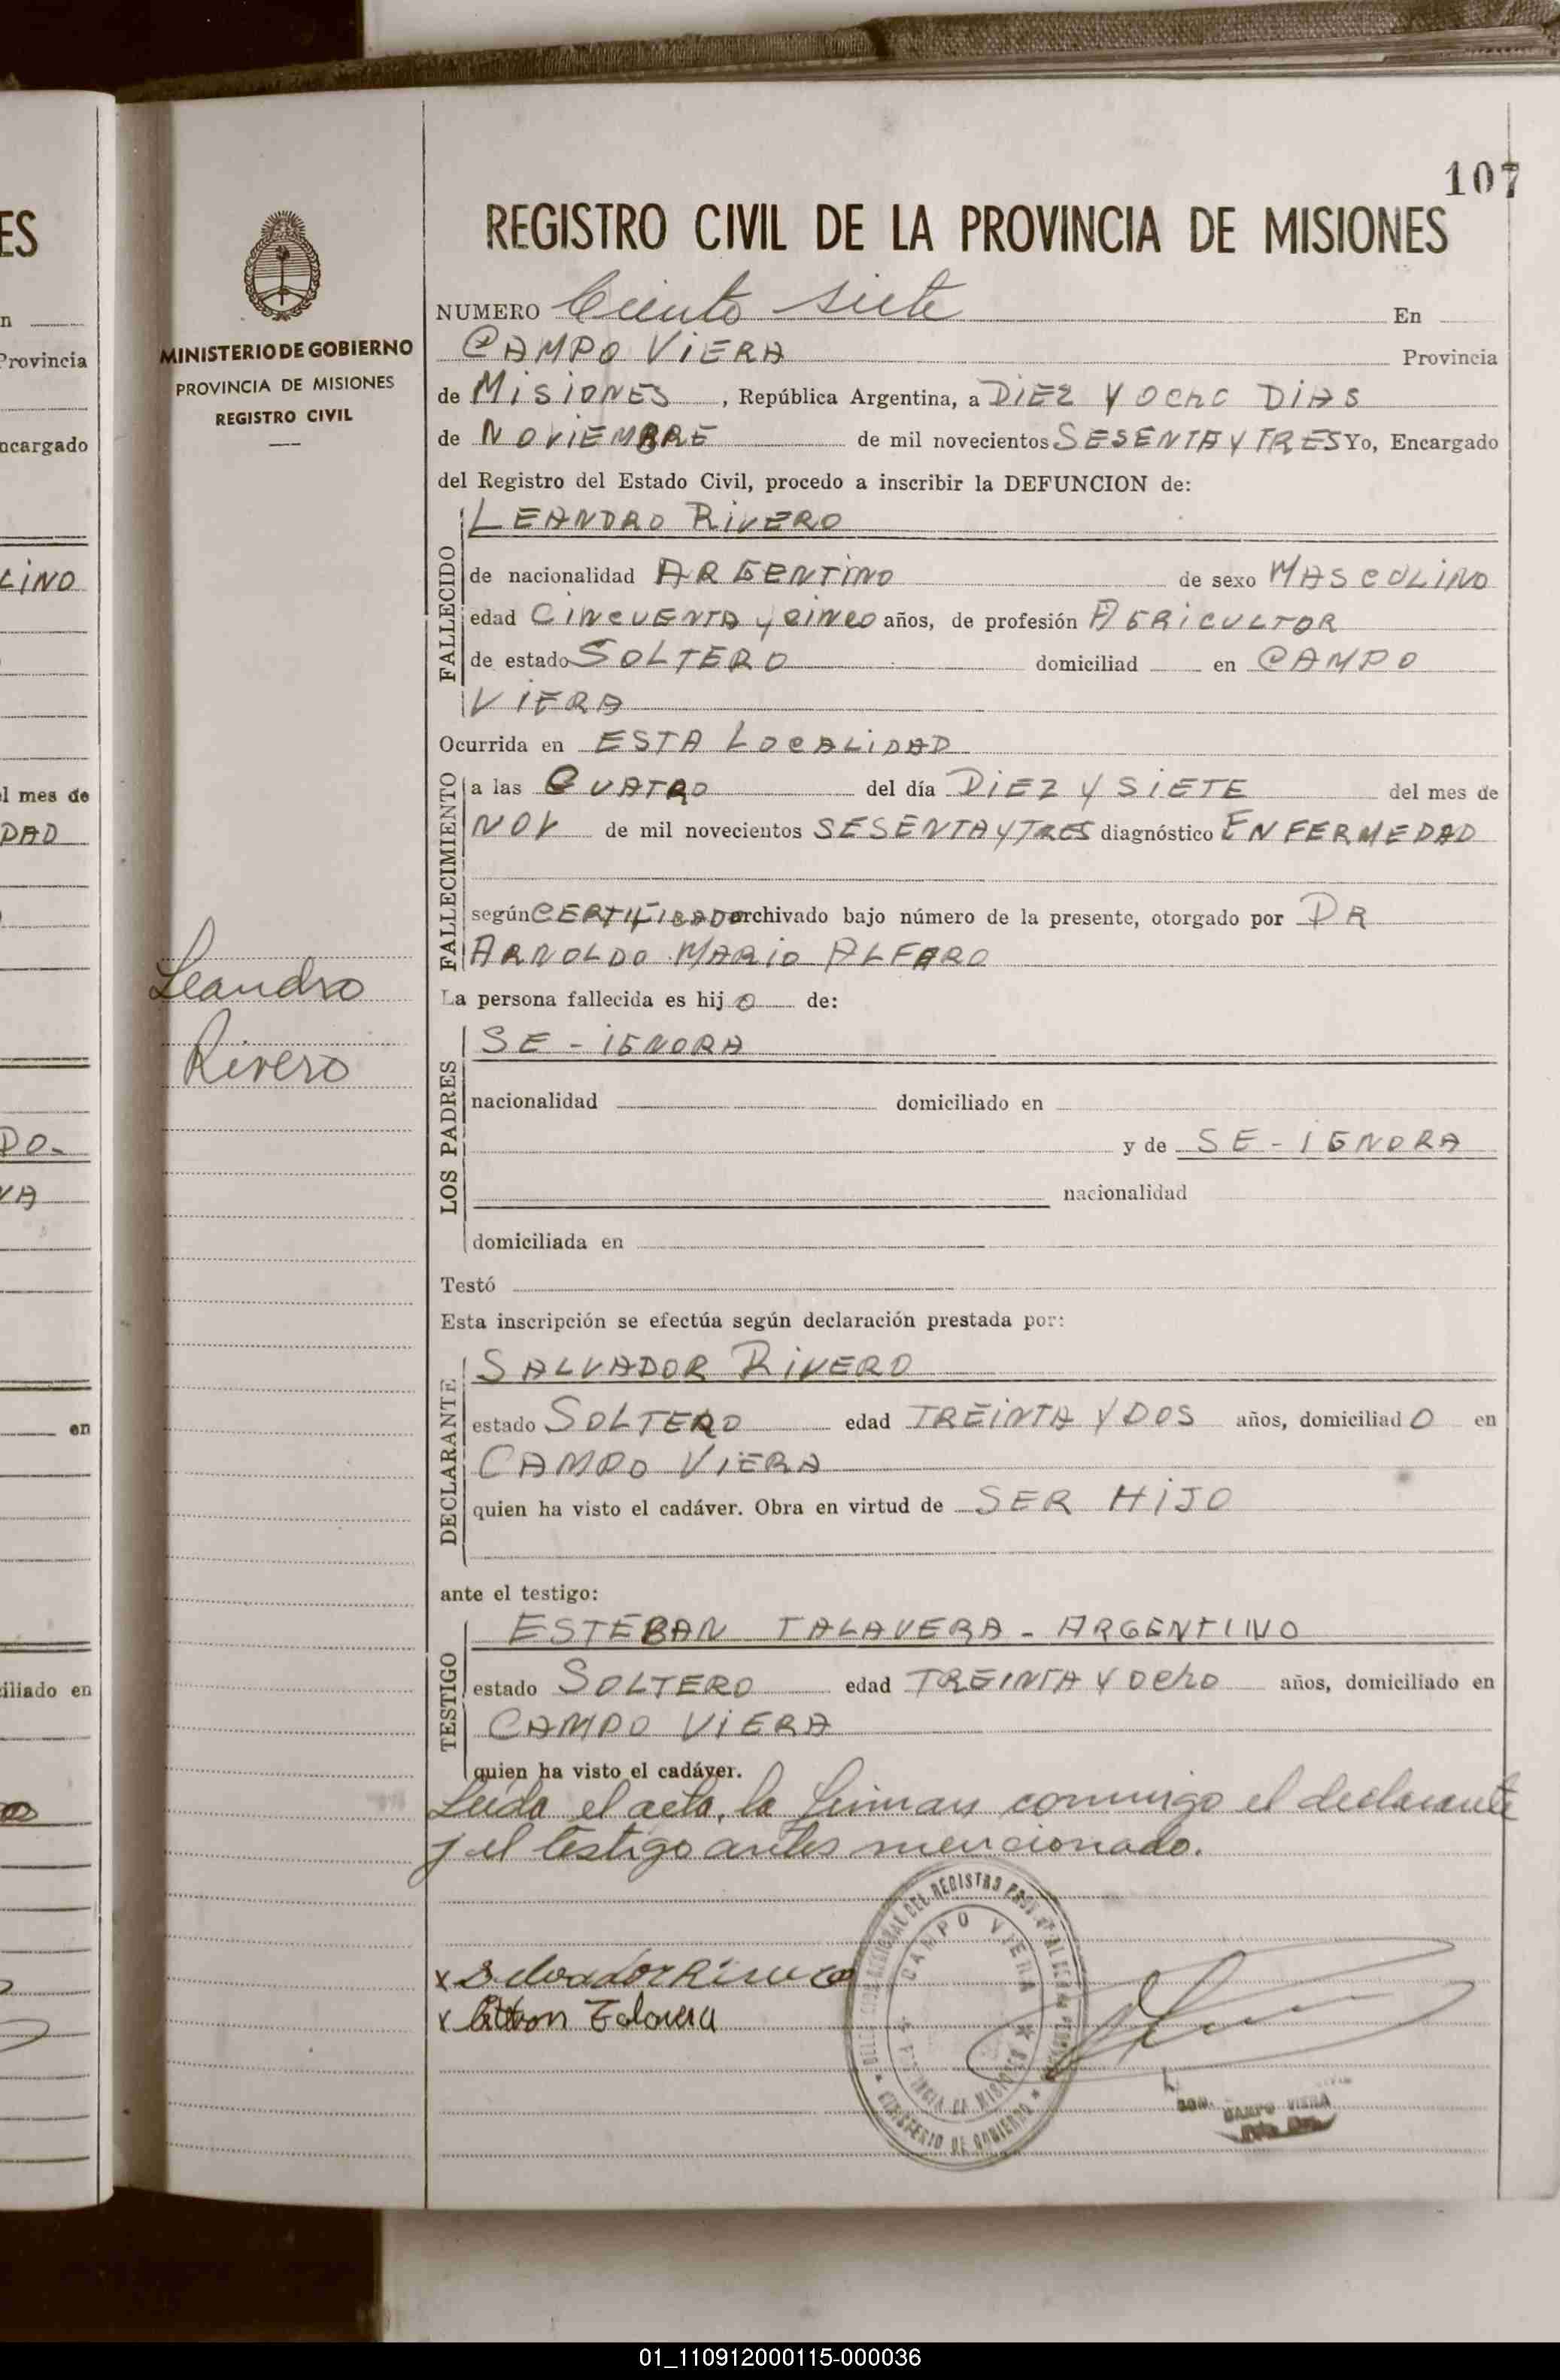 107
REGISTRO CIVIL DE LA PROVINCIA DE MISIONES
MINISTERIO DE GOBIERNO
PROVINCIA DE MISIONES
REGISTRO CIVIL
NUMERO Ciento siete En
CAMPO VIERA Provincia
de MISIONES, República Argentina, a DIEZ Y OCHO DIAS
de NOVIEMBRE de mil novecientos SESENTA Y TRES Yo, Encargado
del Registro del Estado Civil, procedo a inscribir la DEFUNCION de:
FALLECIDO
LEANDRO RIVERO
de nacionalidad ARGENTINO de sexo MASCULINO
edad CINCUENTA y CINCO años, de profesión AGRICULTOR
de estado SOLTERO domiciliad en CAMPO
VIERA
Ocurrida en ESTA LOCALIDAD
FALLECIMIENTO
a las CUATRO del día DIEZ Y SIETE del mes de
NOV de mil novecientos SESENTA Y TRES diagnóstico ENFERMEDAD
según CERTIFICADO archivado bajo número de la presente, otorgado por DR
ARNOLDO MARIO ALFARO
Leandro
Rivero
La persona fallecida es hijo de:
LOS PADRES
SE - IGNORA
nacionalidad domiciliado en
y de SE - IGNORA
nacionalidad
domiciliada en
Testó
Esta inscripción se efectúa según declaración prestada por:
DECLARANTE
SALVADOR RIVERO
estado SOLTERO edad TREINTA Y DOS años, domiciliado en
CAMPO VIERA
quien ha visto el cadáver. Obra en virtud de SER HIJO
ante el testigo:
TESTIGO
ESTEBAN TALAVERA - ARGENTINO
estado SOLTERO edad TREINTA Y OCHO años, domiciliado en
CAMPO VIERA
quien ha visto el cadáver.
Leída el acta, la firman conmigo el declarante
y el testigo antes mencionado.
x Salvador Rivero
x Talavera
CAMPO VIERA
MINISTERIO DE GOBIERNO
CAMPO VIERA
ES
n
Provincia
ncargado
LINO
l mes de
DAD
DO-
VA
en
iliado en
01_110912000115-000036